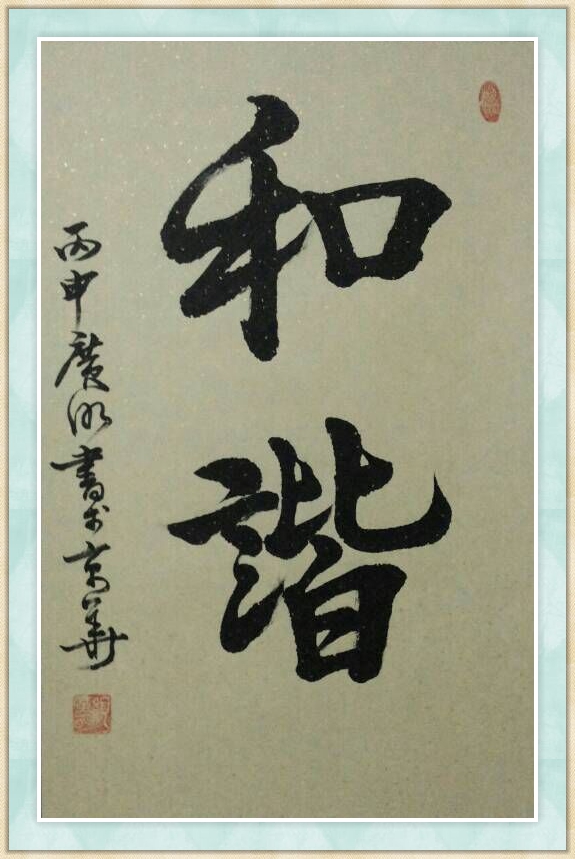 和諧
丙申廣明書於京華